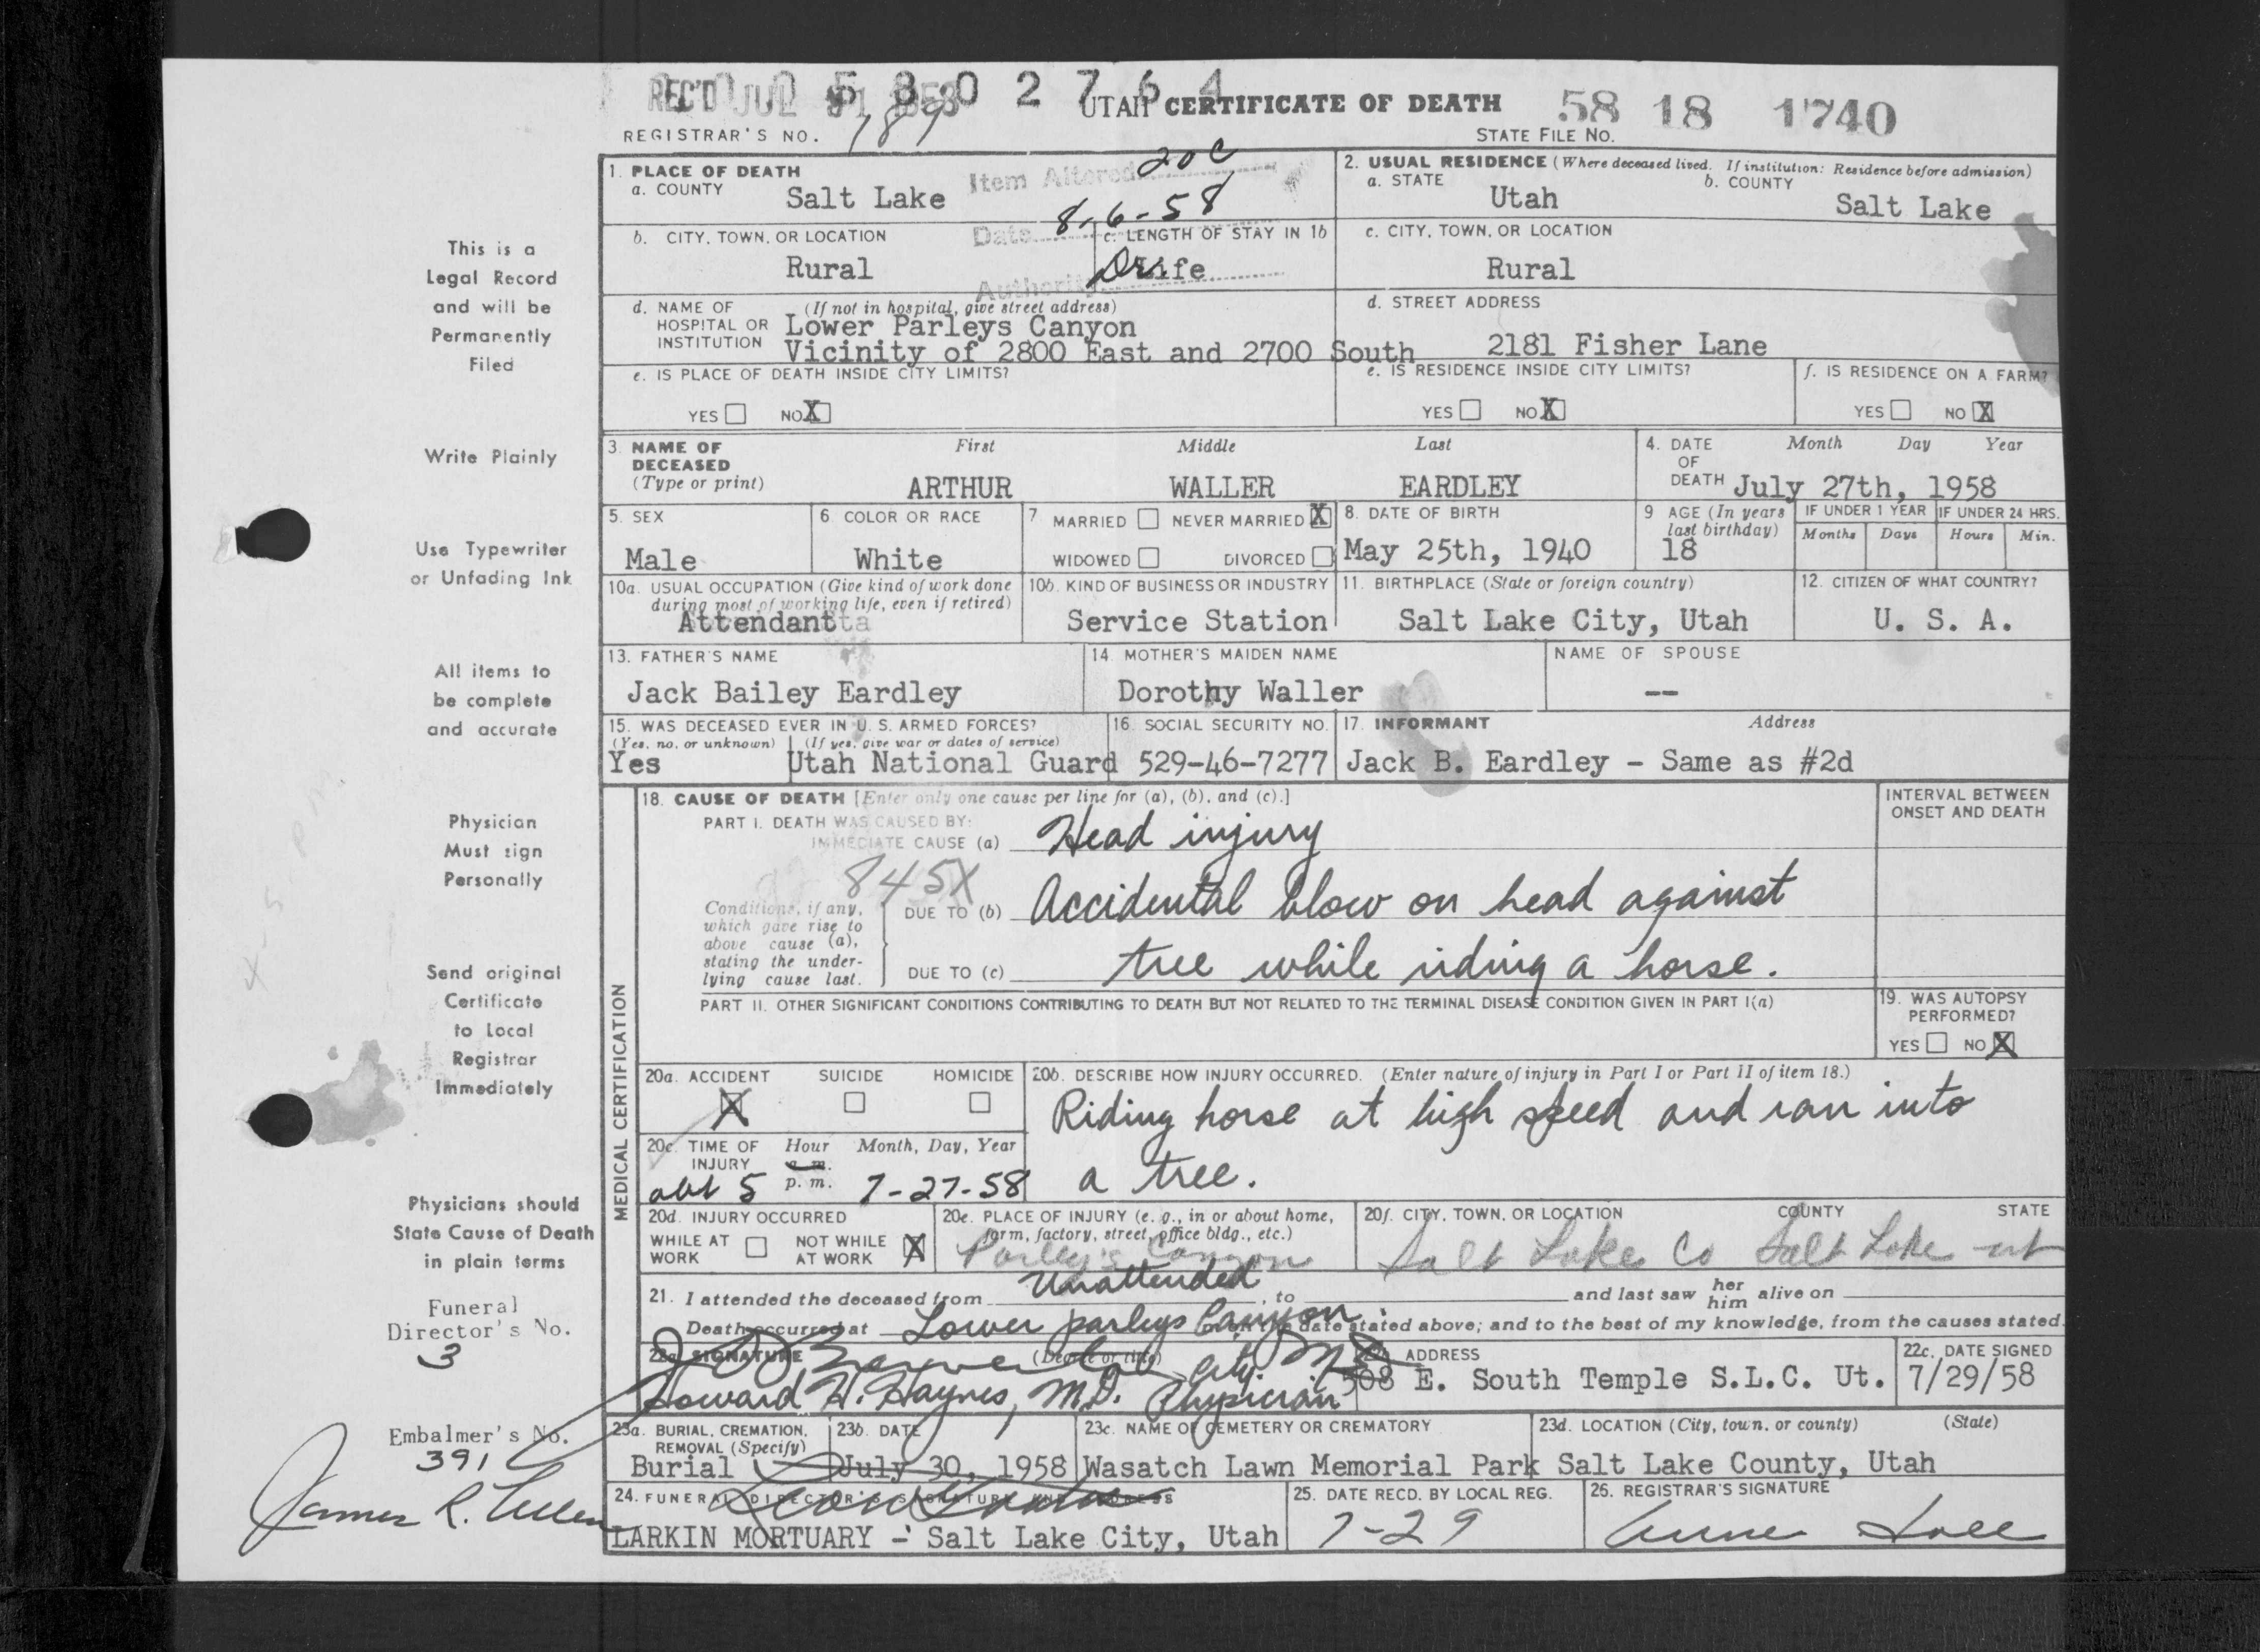 REC'D JUL 31 1958
0 5 8 0 2 7 6 4
UTAH CERTIFICATE OF DEATH
58 18 1740
REGISTRAR'S NO. 189
STATE FILE NO.
1. PLACE OF DEATH
a. COUNTY Salt Lake
Item Altered 20c
Date 8-6-58
Authority Dr.
2. USUAL RESIDENCE (Where deceased lived. If institution: Residence before admission)
a. STATE Utah
b. COUNTY Salt Lake
b. CITY, TOWN, OR LOCATION Rural
c. LENGTH OF STAY IN 1b Life
c. CITY, TOWN, OR LOCATION Rural
d. NAME OF HOSPITAL OR INSTITUTION (If not in hospital, give street address)
Lower Parleys Canyon
Vicinity of 2800 East and 2700 South
d. STREET ADDRESS
2181 Fisher Lane
e. IS PLACE OF DEATH INSIDE CITY LIMITS?
YES NO X
e. IS RESIDENCE INSIDE CITY LIMITS?
YES NO X
f. IS RESIDENCE ON A FARM?
YES NO X
3. NAME OF DECEASED (Type or print)
First Middle Last
ARTHUR WALLER EARDLEY
4. DATE OF DEATH Month Day Year
July 27th, 1958
5. SEX Male
6. COLOR OR RACE White
7. MARRIED NEVER MARRIED X
WIDOWED DIVORCED
8. DATE OF BIRTH May 25th, 1940
9. AGE (In years last birthday) 18
IF UNDER 1 YEAR Months Days
IF UNDER 24 HRS. Hours Min.
10a. USUAL OCCUPATION (Give kind of work done during most of working life, even if retired)
Attendant
10b. KIND OF BUSINESS OR INDUSTRY
Service Station
11. BIRTHPLACE (State or foreign country)
Salt Lake City, Utah
12. CITIZEN OF WHAT COUNTRY?
U. S. A.
13. FATHER'S NAME
Jack Bailey Eardley
14. MOTHER'S MAIDEN NAME
Dorothy Waller
NAME OF SPOUSE
--
15. WAS DECEASED EVER IN U. S. ARMED FORCES?
(Yes, no, or unknown) (If yes, give war or dates of service)
Yes Utah National Guard
16. SOCIAL SECURITY NO.
529-46-7277
17. INFORMANT Address
Jack B. Eardley - Same as #2d
MEDICAL CERTIFICATION
18. CAUSE OF DEATH [Enter only one cause per line for (a), (b), and (c).]
INTERVAL BETWEEN ONSET AND DEATH
PART I. DEATH WAS CAUSED BY:
IMMEDIATE CAUSE (a) Head injury
845X
Conditions, if any, which gave rise to above cause (a), stating the underlying cause last.
DUE TO (b) Accidental blow on head against
DUE TO (c) tree while riding a horse.
PART II. OTHER SIGNIFICANT CONDITIONS CONTRIBUTING TO DEATH BUT NOT RELATED TO THE TERMINAL DISEASE CONDITION GIVEN IN PART I(a)
19. WAS AUTOPSY PERFORMED?
YES NO X
20a. ACCIDENT SUICIDE HOMICIDE
X
20b. DESCRIBE HOW INJURY OCCURRED. (Enter nature of injury in Part I or Part II of item 18.)
Riding horse at high speed and ran into
a tree.
20c. TIME OF INJURY Hour Month, Day, Year
a. m.
abt 5 p. m. 7-27-58
20d. INJURY OCCURRED
WHILE AT WORK NOT WHILE AT WORK X
20e. PLACE OF INJURY (e. g., in or about home, farm, factory, street, office bldg., etc.)
Parley's Canyon
20f. CITY, TOWN, OR LOCATION COUNTY STATE
Salt Lake Co Salt Lake ut
21. I attended the deceased from Unattended, to and last saw her him alive on
Death occurred at Lower parleys Canyon on the date stated above; and to the best of my knowledge, from the causes stated.
22a. SIGNATURE (Degree or title)
Howard H. Haynes, M.D. City Physician
22b. ADDRESS
508 E. South Temple S.L.C. Ut.
22c. DATE SIGNED
7/29/58
23a. BURIAL, CREMATION, REMOVAL (Specify)
Burial
23b. DATE
July 30, 1958
23c. NAME OF CEMETERY OR CREMATORY
Wasatch Lawn Memorial Park
23d. LOCATION (City, town, or county) (State)
Salt Lake County, Utah
24. FUNERAL DIRECTOR'S SIGNATURE AND ADDRESS
LARKIN MORTUARY - Salt Lake City, Utah
25. DATE RECD. BY LOCAL REG.
7-29
26. REGISTRAR'S SIGNATURE
This is a
Legal Record
and will be
Permanently
Filed
Write Plainly
Use Typewriter
or Unfading Ink
All items to
be complete
and accurate
Physician
Must sign
Personally
Send original
Certificate
to Local
Registrar
Immediately
Physicians should
State Cause of Death
in plain terms
Funeral
Director's No.
3
Embalmer's No.
391
James R.